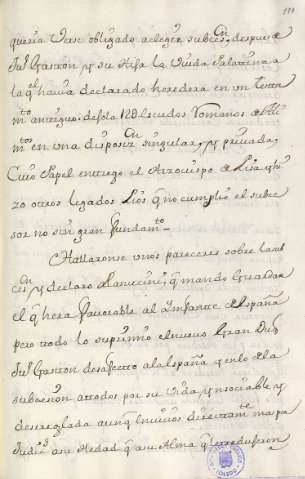 queria verse obligado aelegir subces.on despues d
Jul Gaston y su hija la Viuda Palatina a
la ql havia declarado heredera en un testa
mto antiguo. de solo 120 escudos Romanos de
en una disposn singular, y privada,
Cuio Papel entrego el Arzobispo de Pisa, y hi
zo otros legados Pios q no cumplio el subce
sor no sin gran fundamto
Hallaronse unos pareceres sobre la sub
y declaro q mando Guardar
el q hera favorable al Infante de España
pero todo lo suprimio el nuevo Gran Duq
Jul Gaston desafecto ala España y enlo de la
subcesion atodos por su vida ynsociable y
desreglada aunq directamte mas pa
su Hedad q a su Alma q le reduxeron